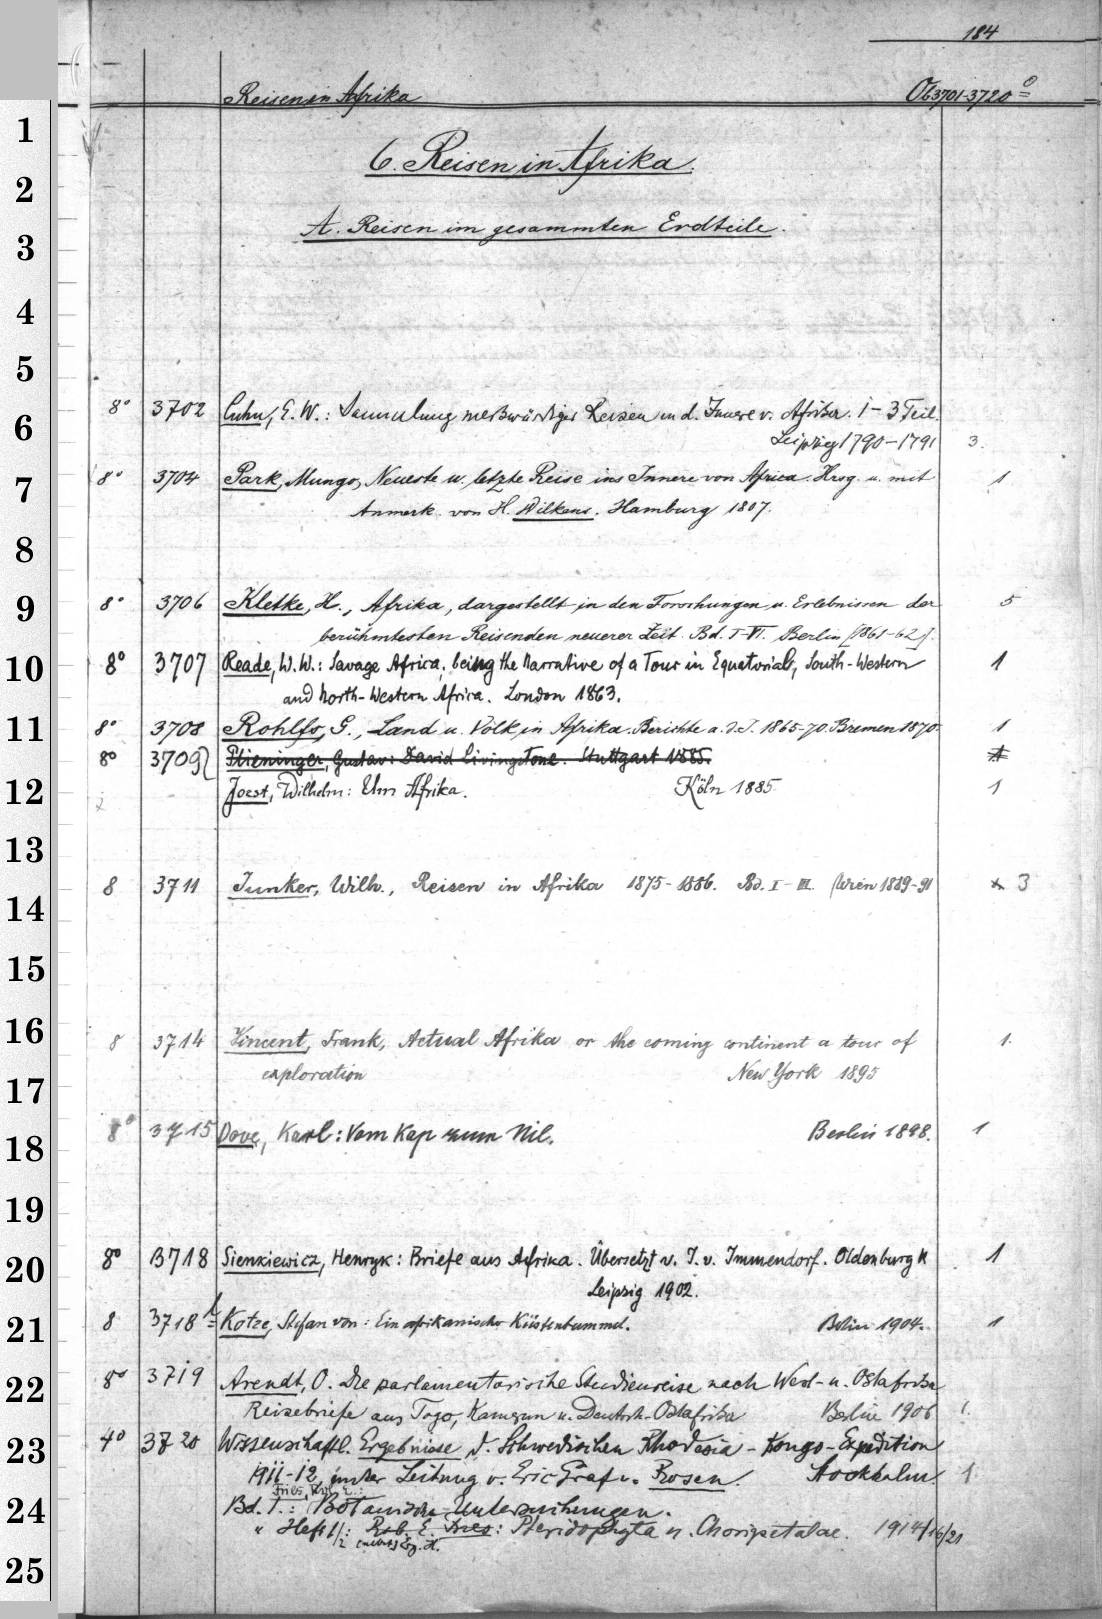 184
Reisen in Afrika Ob 3701-3720
6. Reisen in Afrika.
A. Reisen im gesammten Erdteile.
8° 3702 Cuhn, E. W.: Sammlung merkwürdiger Reisen in d. Innere v. Afrika. 1-3 Teil.
Leipzig 1790-1791 3.
8° 3704 Park, Mungo, Neueste u. letzte Reise ins Innere von Africa. Hrsg. u. mit 1
Anmerk. von H. Wilkens. Hamburg 1807.
8° 3706 Kletke, H., Afrika, dargestellt in den Forschungen u. Erlebnissen der 5
berühmtesten Reisenden neuerer Zeit. Bd. I-VI. Berlin [1861-62].
8° 3707 Reade, W. W.: Savage Africa; being the Narrative of a Tour in Equatorial, South-Western 1
and North-Western Africa. London 1863.
8° 3708 Rohlfs, G., Land u. Volk in Afrika. Berichte a. d. J. 1865-70. Bremen 1870. 1
8° 3709 Plieninger, Gustav: David Livingstone. Stuttgart 1885. 1
Joest, Wilhelm: Um Afrika. Köln 1885. 1
8 3711 Junker, Wilh., Reisen in Afrika 1875-1886. Bd. I-III. Wien 1889-91 3
8 3714 Vincent, Frank, Actual Afrika or the coming continent a tour of 1.
exploration New York 1895
8° 3715 Dove, Karl: Vom Kap zum Nil. Berlin 1898. 1
8° 3718 Sienkiewicz, Henryk: Briefe aus Afrika. Übersetzt v. J. v. Immendorf. Oldenburg u 1
Leipzig 1902.
8 3718 b Kotze, Stefan von: Ein afrikanischer Küstenbummel. Berlin 1904. 1
8° 3719 Arendt, O. Die parlamentarische Studienreise nach West- u. Ostafrika
Reisebriefe aus Togo, Kamerun u. Deutsch-Ostafrika Berlin 1906 1.
4° 3720 Wissenschaftl. Ergebnisse d. Schwedischen Rhodesia-Kongo-Expedition
1911-12, unter Leitung v. Eric Graf v. Rosen. Stockholm 1
Fries, Rob. E.:
Bd. 1.: Botanische Untersuchungen.
" Heft 1/2: Rob. E. Fries: Pteridophyta u. Choripetalae. 1914/16/21